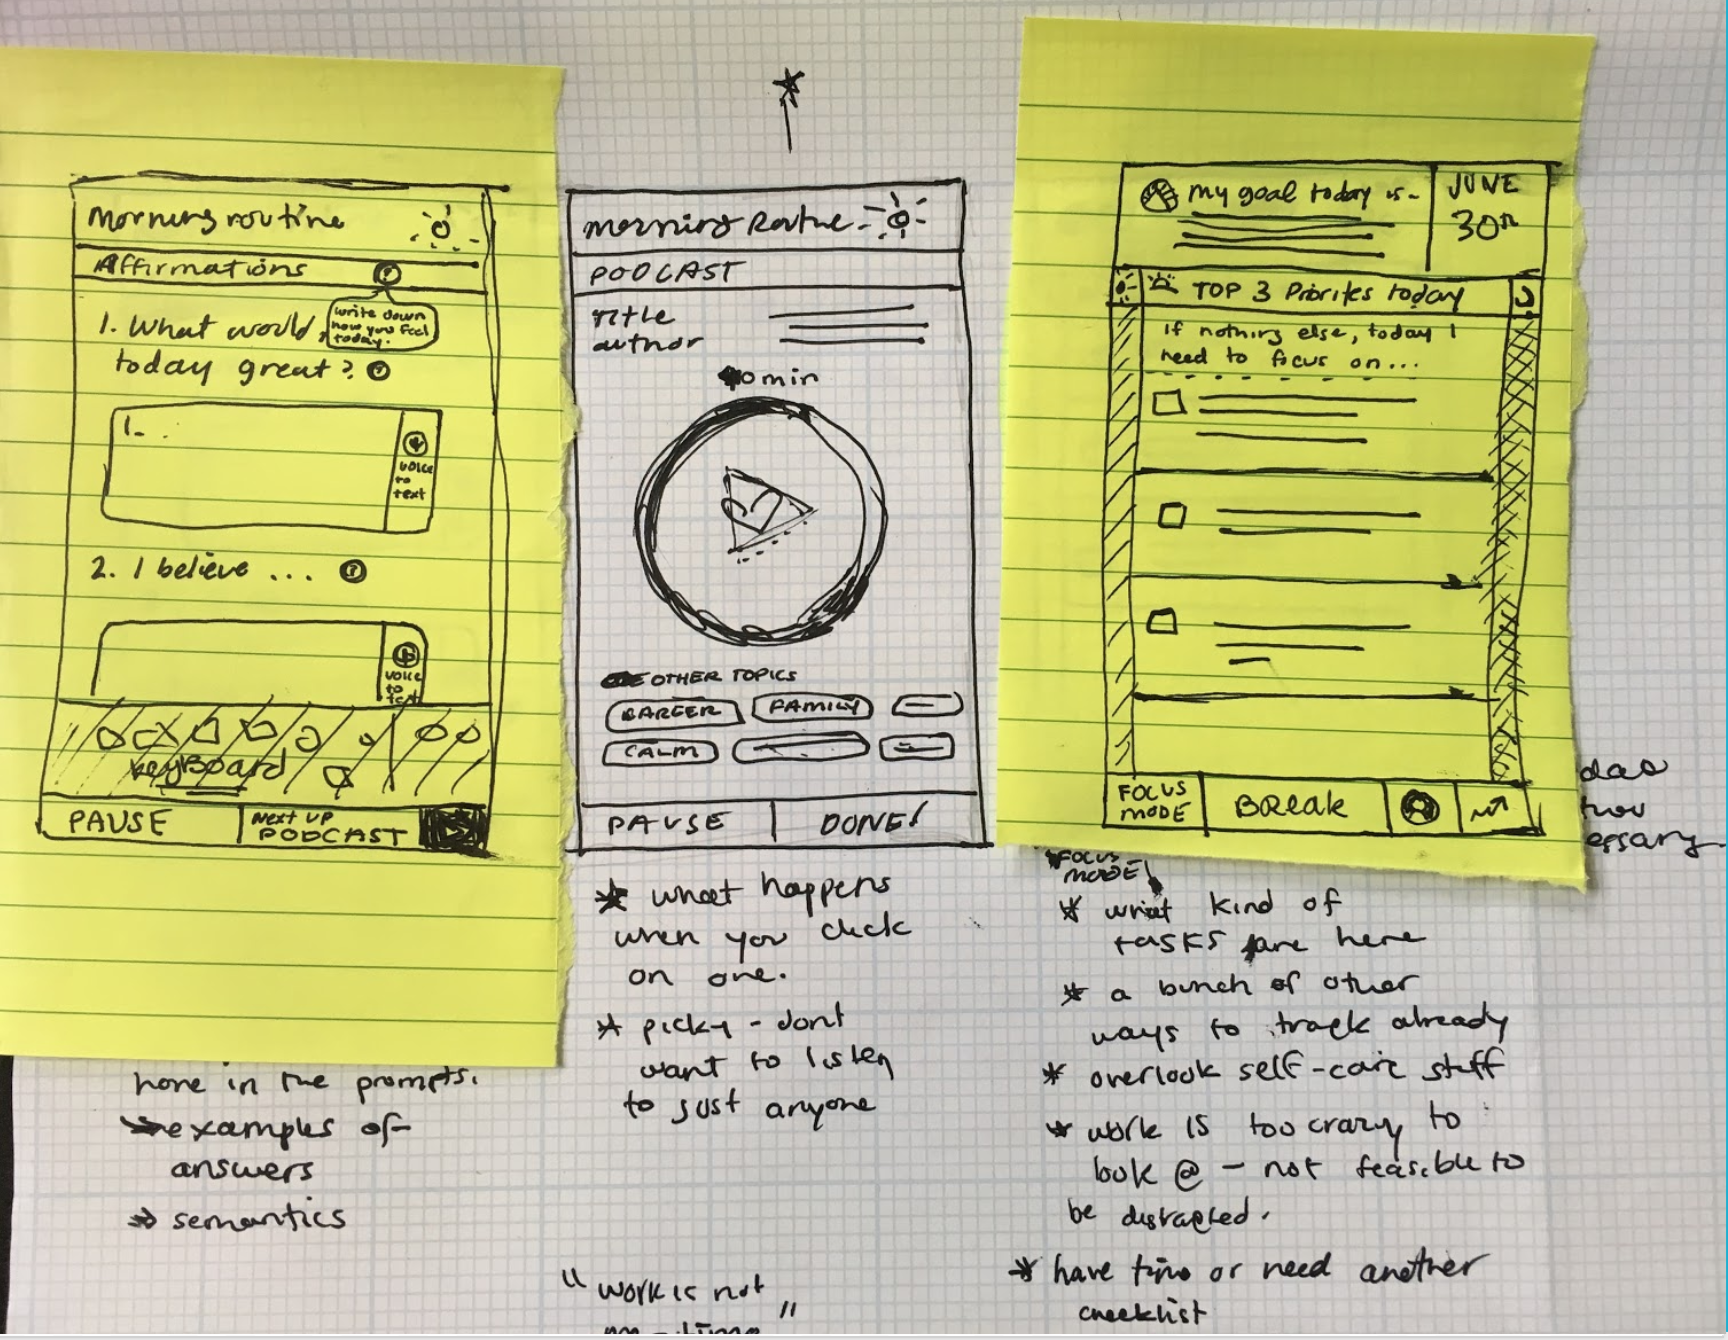 Morning routine
Affirmations ?
1. What would
today great? ?
write down
how you feel
today.
1.
voice
to
text
2. I believe ... ?
voice
to
text
keyboard
PAUSE
NEXT UP
PODCAST
morning
PODCAST
Title
author
min
OTHER TOPICS
CAREER
FAMILY
CALM
PAUSE
DONE!
my goal today is-
JUNE
30th
TOP 3 Priorites today
If nothing else, today I
need to focus on...
FOCUS
MODE
BREAK
essary
in the prompts.
examples of
answers
semantics
* what happens
when you click
on one.
* picky - dont
want to listen
to just anyone
"work is not
"
FOCUS
MODE
* what kind of
tasks are here
* a bunch of other
ways to track already
* overlook self-care stuff
* work is too crazy to
look @ - not feasible to
be distracted.
* have time or need another
checklist